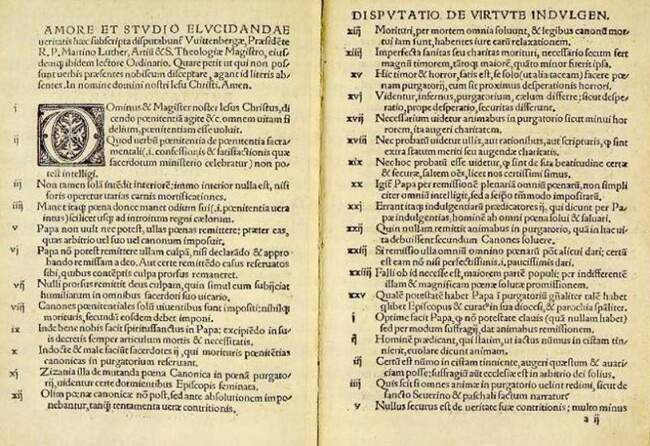 AMORE ET STVDIO ELVCIDANDAE
ueritatis hæc subscripta disputabunt Vuittenbergæ, Præsidēte
R.P. Martino Luther, Artiū & S. Theologiæ Magistro, eiusdemq; ibidem lectore Ordinario. Quare petit ut qui non possunt uerbis præsentes nobiscum disceptare, agant id literis absentes. In nomine domini nostri Iesu Christi. Amen.
i DOminus & Magister noster Iesus Christus, dicendo pœnitentiā agite &c. omnem uitam fidelium, pœnitentiam esse uoluit.
ij Quod uerbū pœnitentia de pœnitentia sacramentali (.i. confessionis & satisfactionis quæ sacerdotum ministerio celebratur) non potest intelligi.
iij Non tamen solā intēdit interiorē; immo interior nulla est, nisi foris operetur uarias carnis mortificationes.
iiij Manet itaq; pœna donec manet odium sui (.i. pœnitentia uera intus) scilicet usq; ad introitum regni cælorum.
v Papa non uult nec potest, ullas pœnas remittere; præter eas, quas arbitrio uel suo uel canonum imposuit.
vj Papa nō potest remittere ullam culpā, nisi declarādo & approbando remissam a deo. Aut certe remittēdo casus reseruatos sibi, quibus contēptis culpa prorsus remaneret.
vij Nulli prorsus remittit deus culpam, quin simul eum subijciat humiliatum in omnibus sacerdoti suo uicario.
viij Canones pœnitentiales solū uiuentibus sunt impositi; nihilq; morituris, secundū eosdem debet imponi.
ix Inde bene nobis facit spiritussanctus in Papa; excipiēdo in suis decretis semper articulum mortis & necessitatis.
x Indocte & male faciūt sacerdotes ij, qui morituris pœnitētias canonicas in purgatorium reseruant.
xj Zizania illa de mutanda pœna Canonica in pœnā purgatorij, uidentur certe dormientibus Episcopis seminata.
xij Olim pœnæ canonicæ nō post, sed ante absolutionem imponebantur, tanq̄ tentamenta ueræ contritionis.
DISPVTATIO DE VIRTVTE INDVLGEN.
xiij Morituri, per mortem omnia soluunt, & legibus canonū mortui iam sunt, habentes iure earū relaxationem.
xiiij Imperfecta sanitas seu charitas morituri, necessario secum fert magnū timorem, tātoq; maiorē, quāto minor fuerit ipsa.
xv Hic timor & horror, satis est, se solo (ut alia taceam) facere pœnam purgatorij, cum sit proximus desperationis horrori.
xvj Videntur, infernus, purgatorium, cælum differre; sicut desperatio, prope desperatio, securitas differunt.
xvij Necessarium uidetur animabus in purgatorio sicut minui horrorem, ita augeri charitatem.
xviij Nec probatū uidetur ullis, aut rationibus, aut scripturis, q̄ sint extra statum meriti seu augendæ charitatis.
xix Nec hoc probatū esse uidetur, q̄ sint de sua beatitudine certæ & securæ, saltem oēs, licet nos certissimi simus.
xx Igit̄ Papa per remissionē plenariā omniū pœnarū, non simpliciter omniū intelligit, sed a seipso tmmodo impositarū.
xxj Errant itaq; indulgentiarū prædicatores ij, qui dicunt per Papæ indulgentias, hominē ab omni pœna solui & saluari.
xxij Quin nullam remittit animabus in purgatorio, quā in hac uita debuissent secundum Canones soluere.
xxiij Si remissio ulla omniū omnino pœnarū pōt alicui dari; certū est eam nō nisi perfectissimis, i. paucissimis dari.
xxiiij Falli ob id necesse est, maiorem partē populi; per indifferentē illam & magnificam pœnæ solutæ promissionem.
xxv Qualē potestatē habet Papa ī purgatoriū gn̄aliter talē habet q̄libet Episcopus & curat⁹ in sua diocesi, & parochia specialiter.
i Optime facit Papa, q̄ nō potestate clauis (quā nullam habet) sed per modum suffragij, dat animabus remissionem.
ij Hominē prædicant, qui statim, ut iactus nūmus in cistam tinnierit, euolare dicunt animam.
iij Certū est nūmo in cistam tinniente, augeri quæstum & auariciam posse; suffragiū aūt ecclesiæ est in arbitrio dei solius.
iiij Quis scit si omnes animæ in purgatorio uelint redimi, sicut de sancto Seuerino & paschali factum narratur.
v Nullus securus est de ueritate suæ contritionis; multo minus
a ij